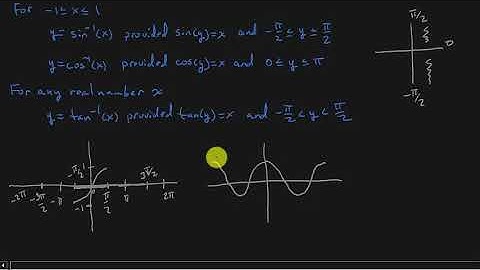 For -1≤x≤1
y=sin⁻¹(x) provided sin(y)=x and -π/2≤y≤π/2
y=cos⁻¹(x) provided cos(y)=x and 0≤y≤π
For any real number x
y=tan⁻¹(x) provided tan(y)=x and -π/2<y<π/2
π/2
0
-π/2
-π/2 1
-2π -3π/2 -π π/2 π 3π/2 2π
-1